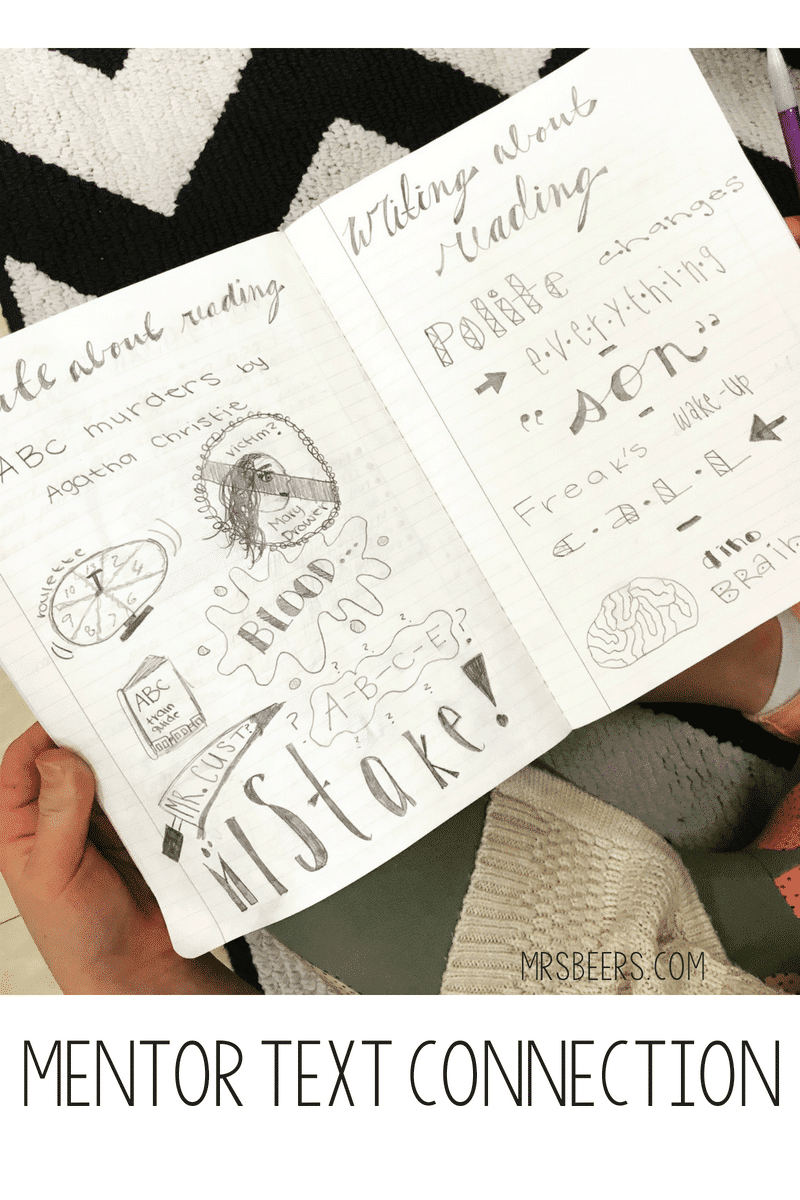 about reading
ABC murders by
Agatha Christie
victim?
Mary
Drower
roulette
BLOOD...
A-B-C-E?
ABC
train
guide
MR. CUST?
MIStake!
Writing about
reading
Polite changes
e.v.e.r.y.t.h.i.n.g
"son"
Freak's wake-up
c.a.l.l
dino
BRaiN
MRSBEERS.COM
MENTOR TEXT CONNECTION